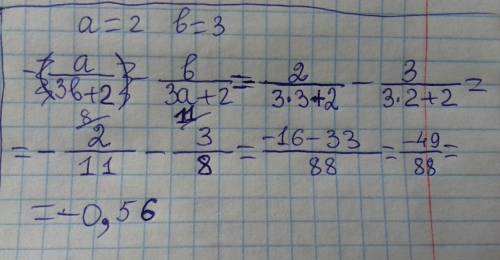 a=2 b=3
-(a/(3b+2)) - b/(3a+2) = 2/(3·3+2) - 3/(3·2+2) =
= - 2/11 (8) - 3/8 (11) = (-16-33)/88 = -49/88 =
= -0,56